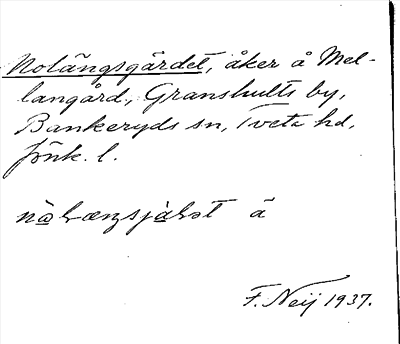 Notängsgärdet, åker å Mel-
langård, Granshults by,
Bankeryds sn, Tveta hd,
Jönk. l.
F. Neij 1937.